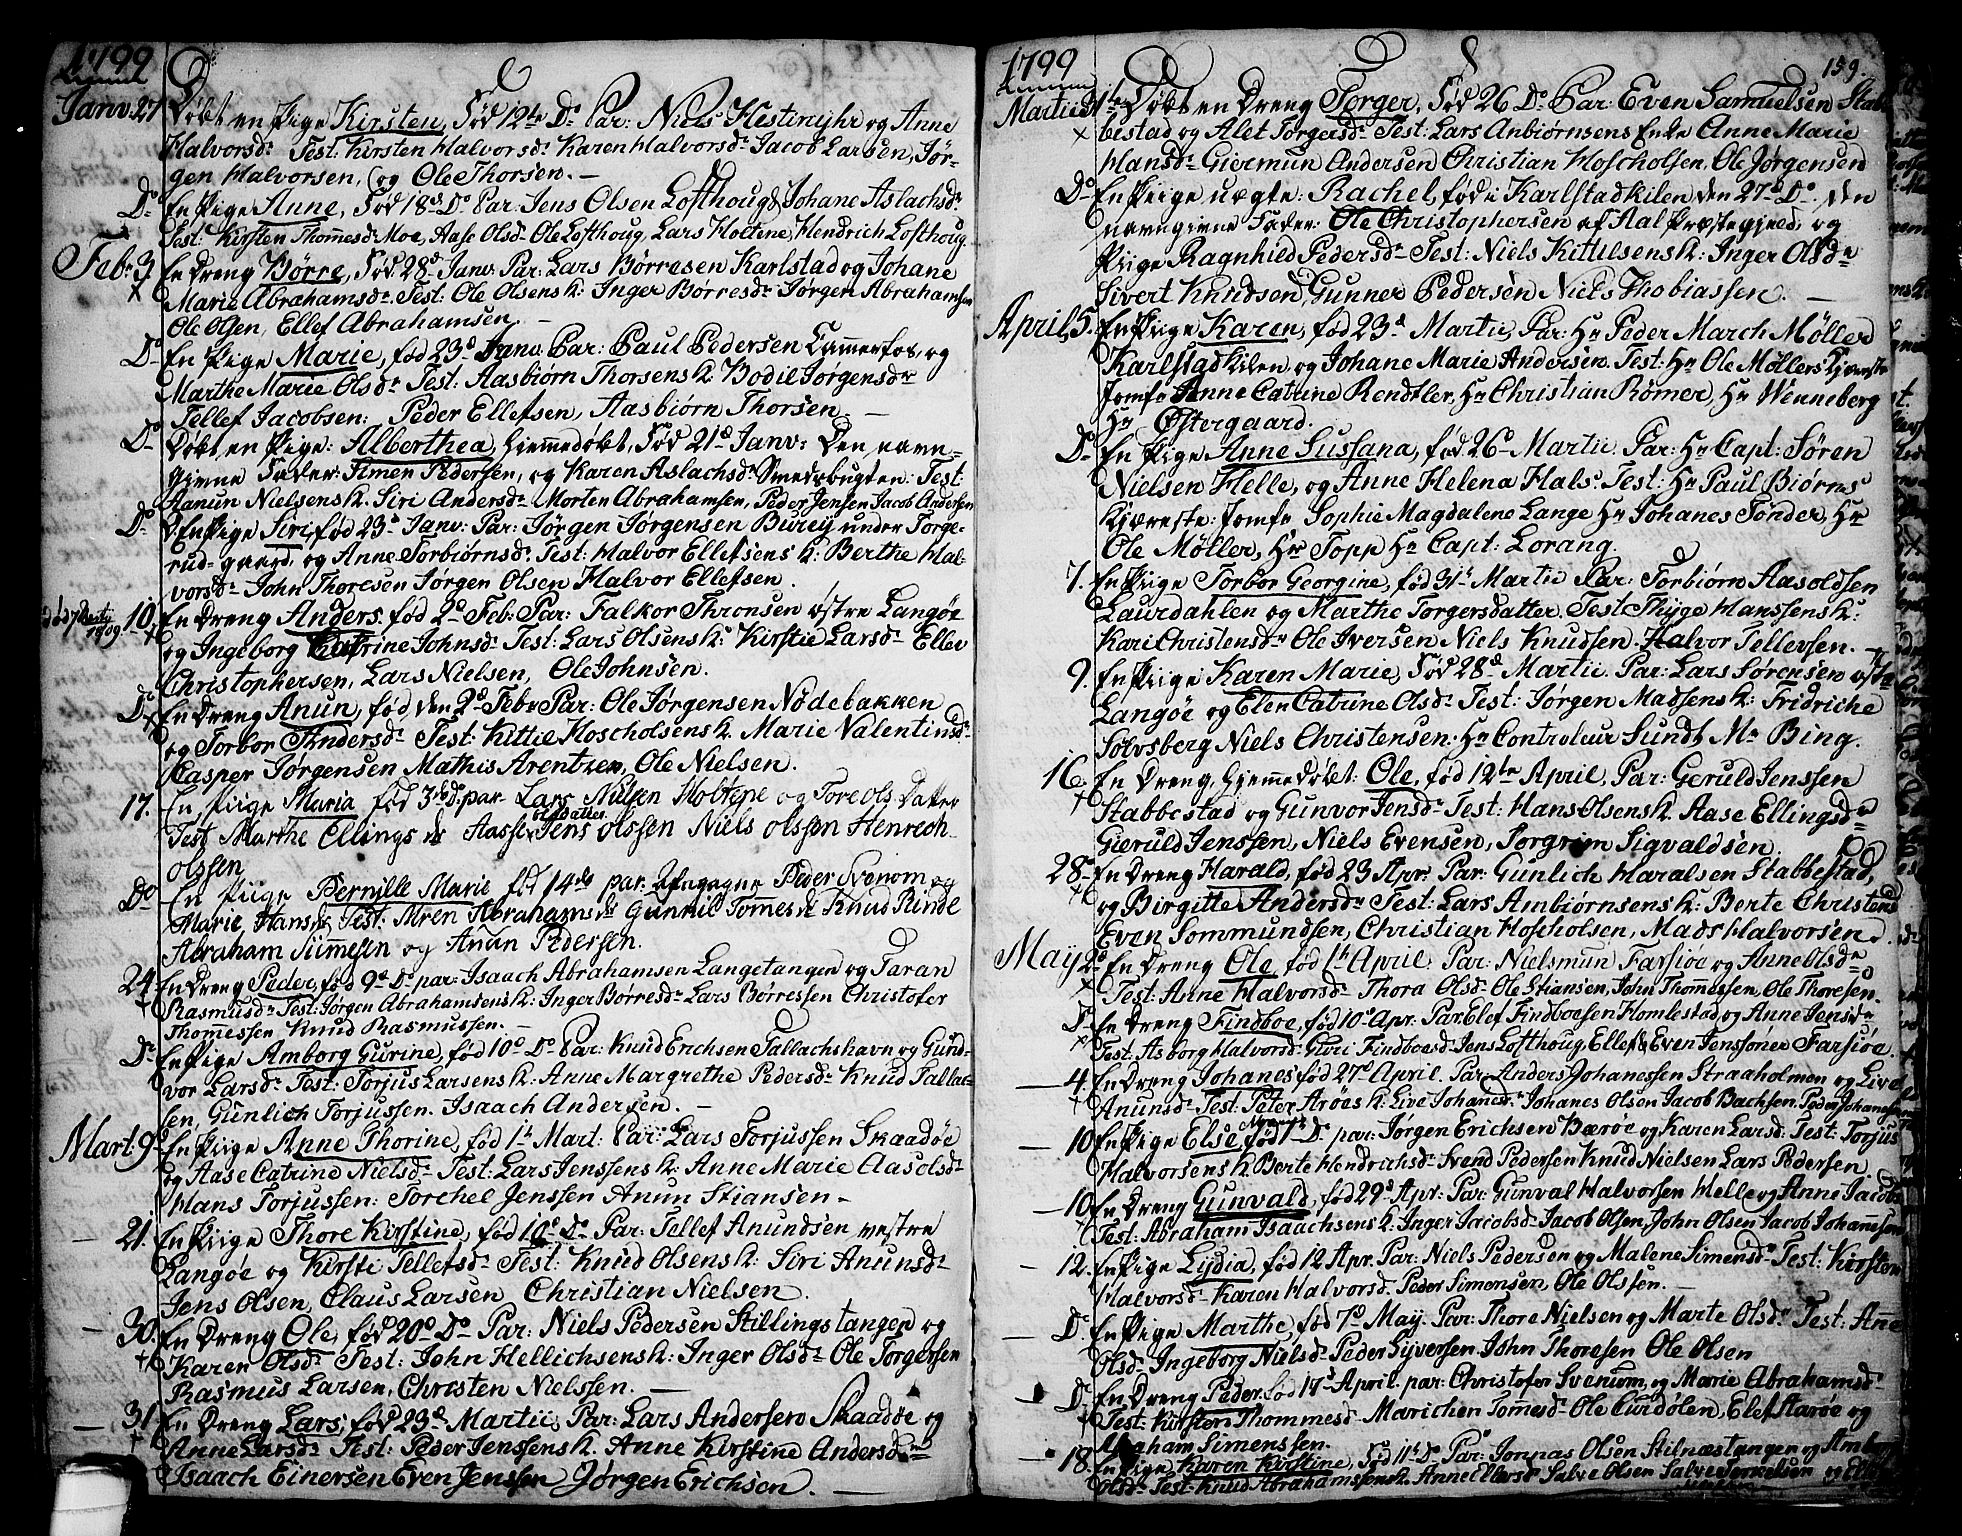 1799
Janv. 27 Døbt en Pige Kirsten, Fød 12te Do Par: Niels Hestinyhr og Anne
Halvorsdr Test: Kirsten Halvorsdr Karen Halvorsdr Jacob Larsen, Jør-
gen Halvorsen, og Ole Thorsen. —
Do En Pige Anne, Fød 18d Do Par: Jens Olsen Lofthoug & Johane Aslachsdr
Test: Kirsten Thommesdr Moe, Aase Olsdr Ole Lofthoug, Lars Holtene, Hendrich Lofthoug
Febr 3 En Dreng Børre, Fød 28d Janv. Par: Lars Børresen Karlstad og Johane
Marie Abrahamsdr Test: Ole Olsens K: Inger Børresdr Jørgen Abrahamsen
Ole Olsen, Ellef Abrahamsen. —
Do En Pige Marie, fød 23d Janv. Par: Paul Pedersen Cammerfos, og
Marthe Marie Olsdr Test: Aasbiørn Thorsens K: Bodil Jørgensdr
Tellef Jacobsen: Peder Ellefsen, Aasbiørn Thorsen. —
Do Døbt en Pige: Alberthea, hiemmedøbt, Fød 21d Janv: Den navn-
givne Fader: Simen Pedersen, og Karen Aslachsdr Smedsbugten: Test:
Aanun Nielsens K. Siri Andersdr Morten Abrahamsen, Peder Jensen Jacob Andersen
Do En Pige Siri, fød 23d Janv: Par: Jørgen Jørgensen Burey under Torge-
rud-gaard, og Anne Torbiørnsdr Test: Halvor Ellefsens K: Berthe Hal-
vorsdr John Thoresen Jørgen Olsen Halvor Ellefsen.
10. En Dreng Anders, fød 2d Feb: Par: Falkor Thronsen østre Langøe
og Ingeborg Catrine Johnsdr Test: Lars Olsens K: Kirstie Larsdr Ellev
Christophersen, Lars Nielsen, Ole Johnsen.
Do En Dreng Anun, fød den 2d Febr Par: Ole Jørgensen Nødebakken
og Torbor Andersdr Test: Kittil Hoscholsens K. Marie Valentinsdr
Casper Jørgensen Mathis Arentzen, Ole Nielsen.
17. En Piige Maria fød 3die d. par. Lars Nilsen Holtepe og Tore Ols Datter
Test Marthe Ellings dr Aasse Olsdatter Jens Olssen Niels Olssen Henrech
Olssen
Do En Piige Pernille Marie fød 14de par. Peder Svenom og
Marie Hansdr Test: Mren Abrahamsdr Gunnil Tommesdr Knud Rinde
Abraham Siimesen og Anun Pedersen.
24 En Dreng Peder, fød 9d Do par: Isaach Abrahamsen Langetangen og Taran
Rasmusdr Test: Jørgen Abrahamsens K: Inger Børresdr Lars Børressen Christofer
Thomessen Knud Rasmussen. —
Do En Pige Amborg Gurine, fød 10d Do Par: Knud Erichsen Tallachshavn og Gund-
vor Larsdr Test: Torjus Larsens K: Anne Margrethe Pedersdr Knud Tallac-
sen, Gunlich Torjussen. Isaach Andersen. —
Mart. 9 En Pige Anne Thorine, fød 1t Mart: Par: Lars Torjussen Skaadøe
og Aase Catrine Nielsdr Test: Lars Jenssens K: Anne Marie Aasolsdr
Hans Torjussen: Torchel Jenssen Anun Stiansen —
21. En Piige Thore Kirstine, fød 10d Do Par: Tellef Anundsen vestre
Langøe og Kirsti Tellefsdr Test: Knud Olsens K: Siri Anunsdr
Jens Olsen, Claus Larsen Christian Nielsen.
30. En Dreng Ole, fød 20d Do Par: Niels Pedersen Stillingstangen og
Karen Olsdr Test: John Hellichsens K: Inger Olsdr Ole Torgersen
Rasmus Larsen, Christen Nielssen. —
31. En Dreng Lars, fød 23d Martii, Par: Lars Andersen Skaadøe og
Anne Larsdr Test: Peder Jenssens K. Anne Kirstine Andersdr
Isaach Einersen Even Jenssen Jørgen Erichsen. —
1799 159.
Martii Døbt en Dreng Torger, Fød 26 Do Par: Even Samuelsen Stab-
bestad og Alet Torgersdr Test: Lars Anbiørnsens Enke Anne Marie
Hansdr Giermun Andersen Christian Hoscholsen, Ole Jørgensen
Do En Piige uægte: Rachel, fød i Karlstadkilen den 27d Do. den
navngivne Fader: Ole Christophersen af Aal Præstegjeld, og
Piige Ragnhild Pedersdr Test: Niels Kittilsens K: Inger Olsdr
Sivert Knudsen, Gunner Pedersen Niels Thobiassen. —
April 5. En Piige Karen, fød 23d Martii, Par: Hr Peder March Møller
Karlstadkilen, og Johane Marie Andersen. Test: Hr Ole Møllers Kjæreste
Jomfr Anne Catrine Rendtler, Hr Christian Rømer, Hr Wenneberg
Hr Østergaard.
Do En Piige Anne Sussana, fød 26d Martii. Par: Hr Capt: Søren
Nielsen Helle, og Anne Helena Hals: Test: Hr Paul Biørns
Kjæreste: Jomfr Sophie Magdalene Lange Hr Johanes Tønder, Hr
Ole Møller, Hr Topp Hr Capt: Lorang
7. En Piige Torbor Georgine, fød 31t Martii Par: Torbiørn Aasoldsen
Laurdahlen og Marthe Torgersdatter. Test Thyge Hanssens K:
Kari Christensdr Ole Iversen Niels Knudsen. Halvor Tellevsen. —
9. En Piige Karen Marie, Fød 28d Martii. Par: Lars Sørensen østre
Langøe og Elen Catrine Olsdr Test: Jørgen Madsens K: Fridriche
Solvsberg Niels Christensen. Hr Controleur Sundt Mr Bing.
16. En Dreng, hjemmedøbt: Ole, fød 12te April, Par: Geruld Jenssen
Stabbestad og Gunvor Jensdr Test: Hans Olsens K. Aase Ellingsdr
Gieruld Jenssen, Niels Evensen, Torgrim Sigvaldsen.
28 En Dreng Harald, fød 23 Apr: Par: Gunlich Haralsen Stabbestad,
og Birgitte Andersdr Test: Lars Ambiørnsens K: Berte Christens
Even Sommundsen, Christian Hoscholsen, Mads Halvorsen.
May 2d En Dreng Ole, fød 1t April, Par: Nielsmun Farsiøe og Anne Olsdr
Test: Anne Halvorsdr Thora Olsdr Ole Stiansen, John Thomessen, Ole Thoresen.
Do En Dreng Findboe, fød 10d Apr: Par: Elef Findboesen Homlestad, og Anne Jensdr
Test: Asborg Halvorsdr Guri Findboesdr Jens Lofthoug, Ellef & Even Jenssøner Farsiøe.
4. En Dreng Johanes fød 27d April. Par: Anders Johanessen Straaholmen og Live
Anunsdr Test: Peter Arøes K: Live Johansdr Johanes Olsen Jacob Bachsen, Peder Johanessen
10 En Pige Else fød 1 Do par: Jørgen Erichsen Bærøe og Karen Larsdr Test: Torjus
Halvorsens K Berte Hendrichsdr Svend Pedersen Knud Nielsen Lars Pedersen
10. En Dreng Gunvald, fød 29d Apr: Par: Gunval Halvorsen Helle og Anne Jacobs
Test: Abraham Isaachsens K: Inger Jacobsdr Jacob Olsen, John Olsen Jacob Johannesen
12. En Pige Lydia, fød 12 Apr. Par: Niels Pedersen og Malene Simensdr Test: Kirsten
Halvorsdr Karen Halvorsdr Peder Simensen, Ole Olssen. —
Do En Pige Marthe, fød 7d May. Par: Thore Nielsen og Marte Olsdr Test: Anne
Olsdr Ingeborg Nielsdr Peder Syversen. John Thoresen Ole Olsen
Do En Dreng Peder fød 17d April. par: Christofer Svenum, og Marie Abrahamsdr
Test: Kirsten Thommesdr Marichen Tommesdr Ole Curdølen, Elef Aarøe og
Abraham Simenssen.
18. En Pige Karen Kirstine, Fød 11t Do Par: Jonnas Olsen Stilnæstangen og Amborg
Olsdr Test: Knud Abrahamsens K. Anne Ellefsdr Salve Olsen Salve og Ellef